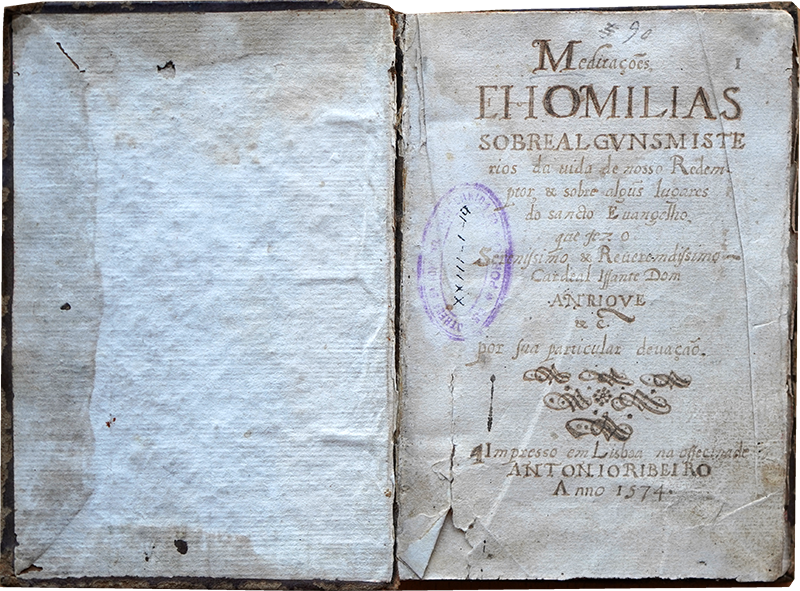 90
Meditações, 1
EHOMILIAS
SOBREALGVNSMISTE
rios da uida de nosso Redem-
ptor, & sobre algũs lugares
do sancto Euangelho,
que fez o
Serenissimo & Reuerendissimo
Cardeal Iffante Dom
ANRIQVE
& c̃.
por sua particular deuação.
XXIII-1-19
Impresso em Lisboa na officina de
ANTONIO RIBEIRO
Anno 1574.